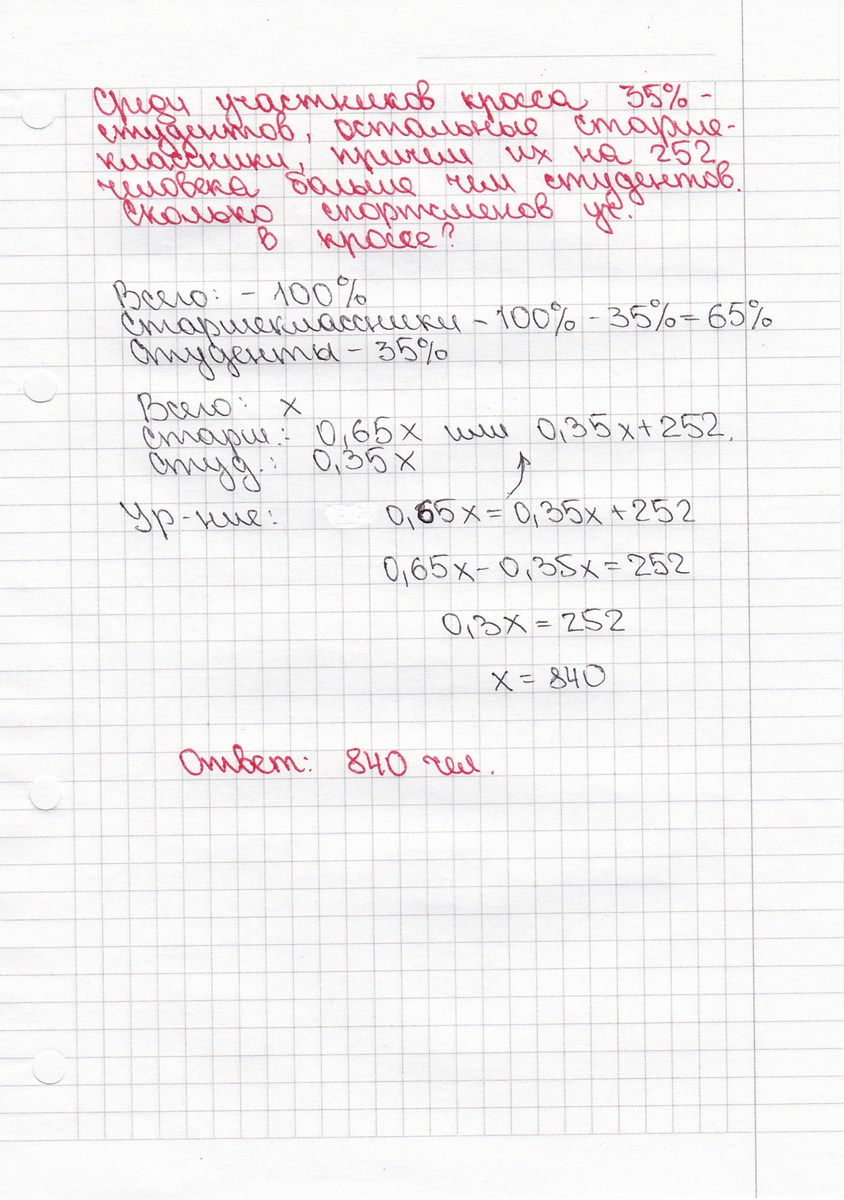 Среди участников кросса 35% -
студентов, остальные старше-
классники, причем их на 252
человека больше чем студентов.
Сколько спортсменов уч.
в кроссе?
Всего: - 100%
Старшеклассники - 100% - 35% = 65%
Студенты - 35%
Всего: x
Старш.: 0,65x или 0,35x + 252.
Студ.: 0,35x
Ур-ние: 0,65x = 0,35x + 252
0,65x - 0,35x = 252
0,3x = 252
x = 840
Ответ: 840 чел.